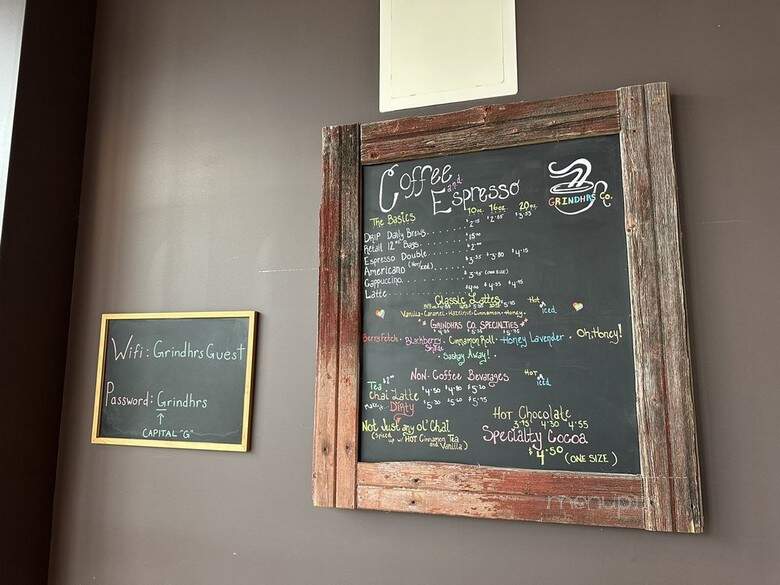 Wifi: Grindhrs Guest
Password: Grindhrs
CAPITAL "G"
Coffee and Espresso
GRINDHRS Co.
The Basics 10oz. 16oz. 20oz.
DRIP Daily Brews
Retail 12oz Bags
Espresso Double
Americano (Hot/Iced) $3.35 $3.80 $4.15
Cappuccino $3.95 (ONE SIZE)
Latte
Classic Lattes Hot Iced
Vanilla · Caramel · Hazelnut · Cinnamon · Honey
GRINDHRS CO. SPECIALTIES
Blackberry Cinnamon Roll · Honey Lavender · Oh, Honey!
Sashay Away!
Non-Coffee Beverages Hot Iced
Tea
Chai Latte $4.50 $4.80 $5.20
Make it DIRTY $5.30
Not Just any ol' Chai
(Spiced up w/ HOT Cinnamon Tea and Vanilla)
Hot Chocolate
3.95 4.30 4.55
Specialty Cocoa
$4.50 (ONE SIZE)
menupix